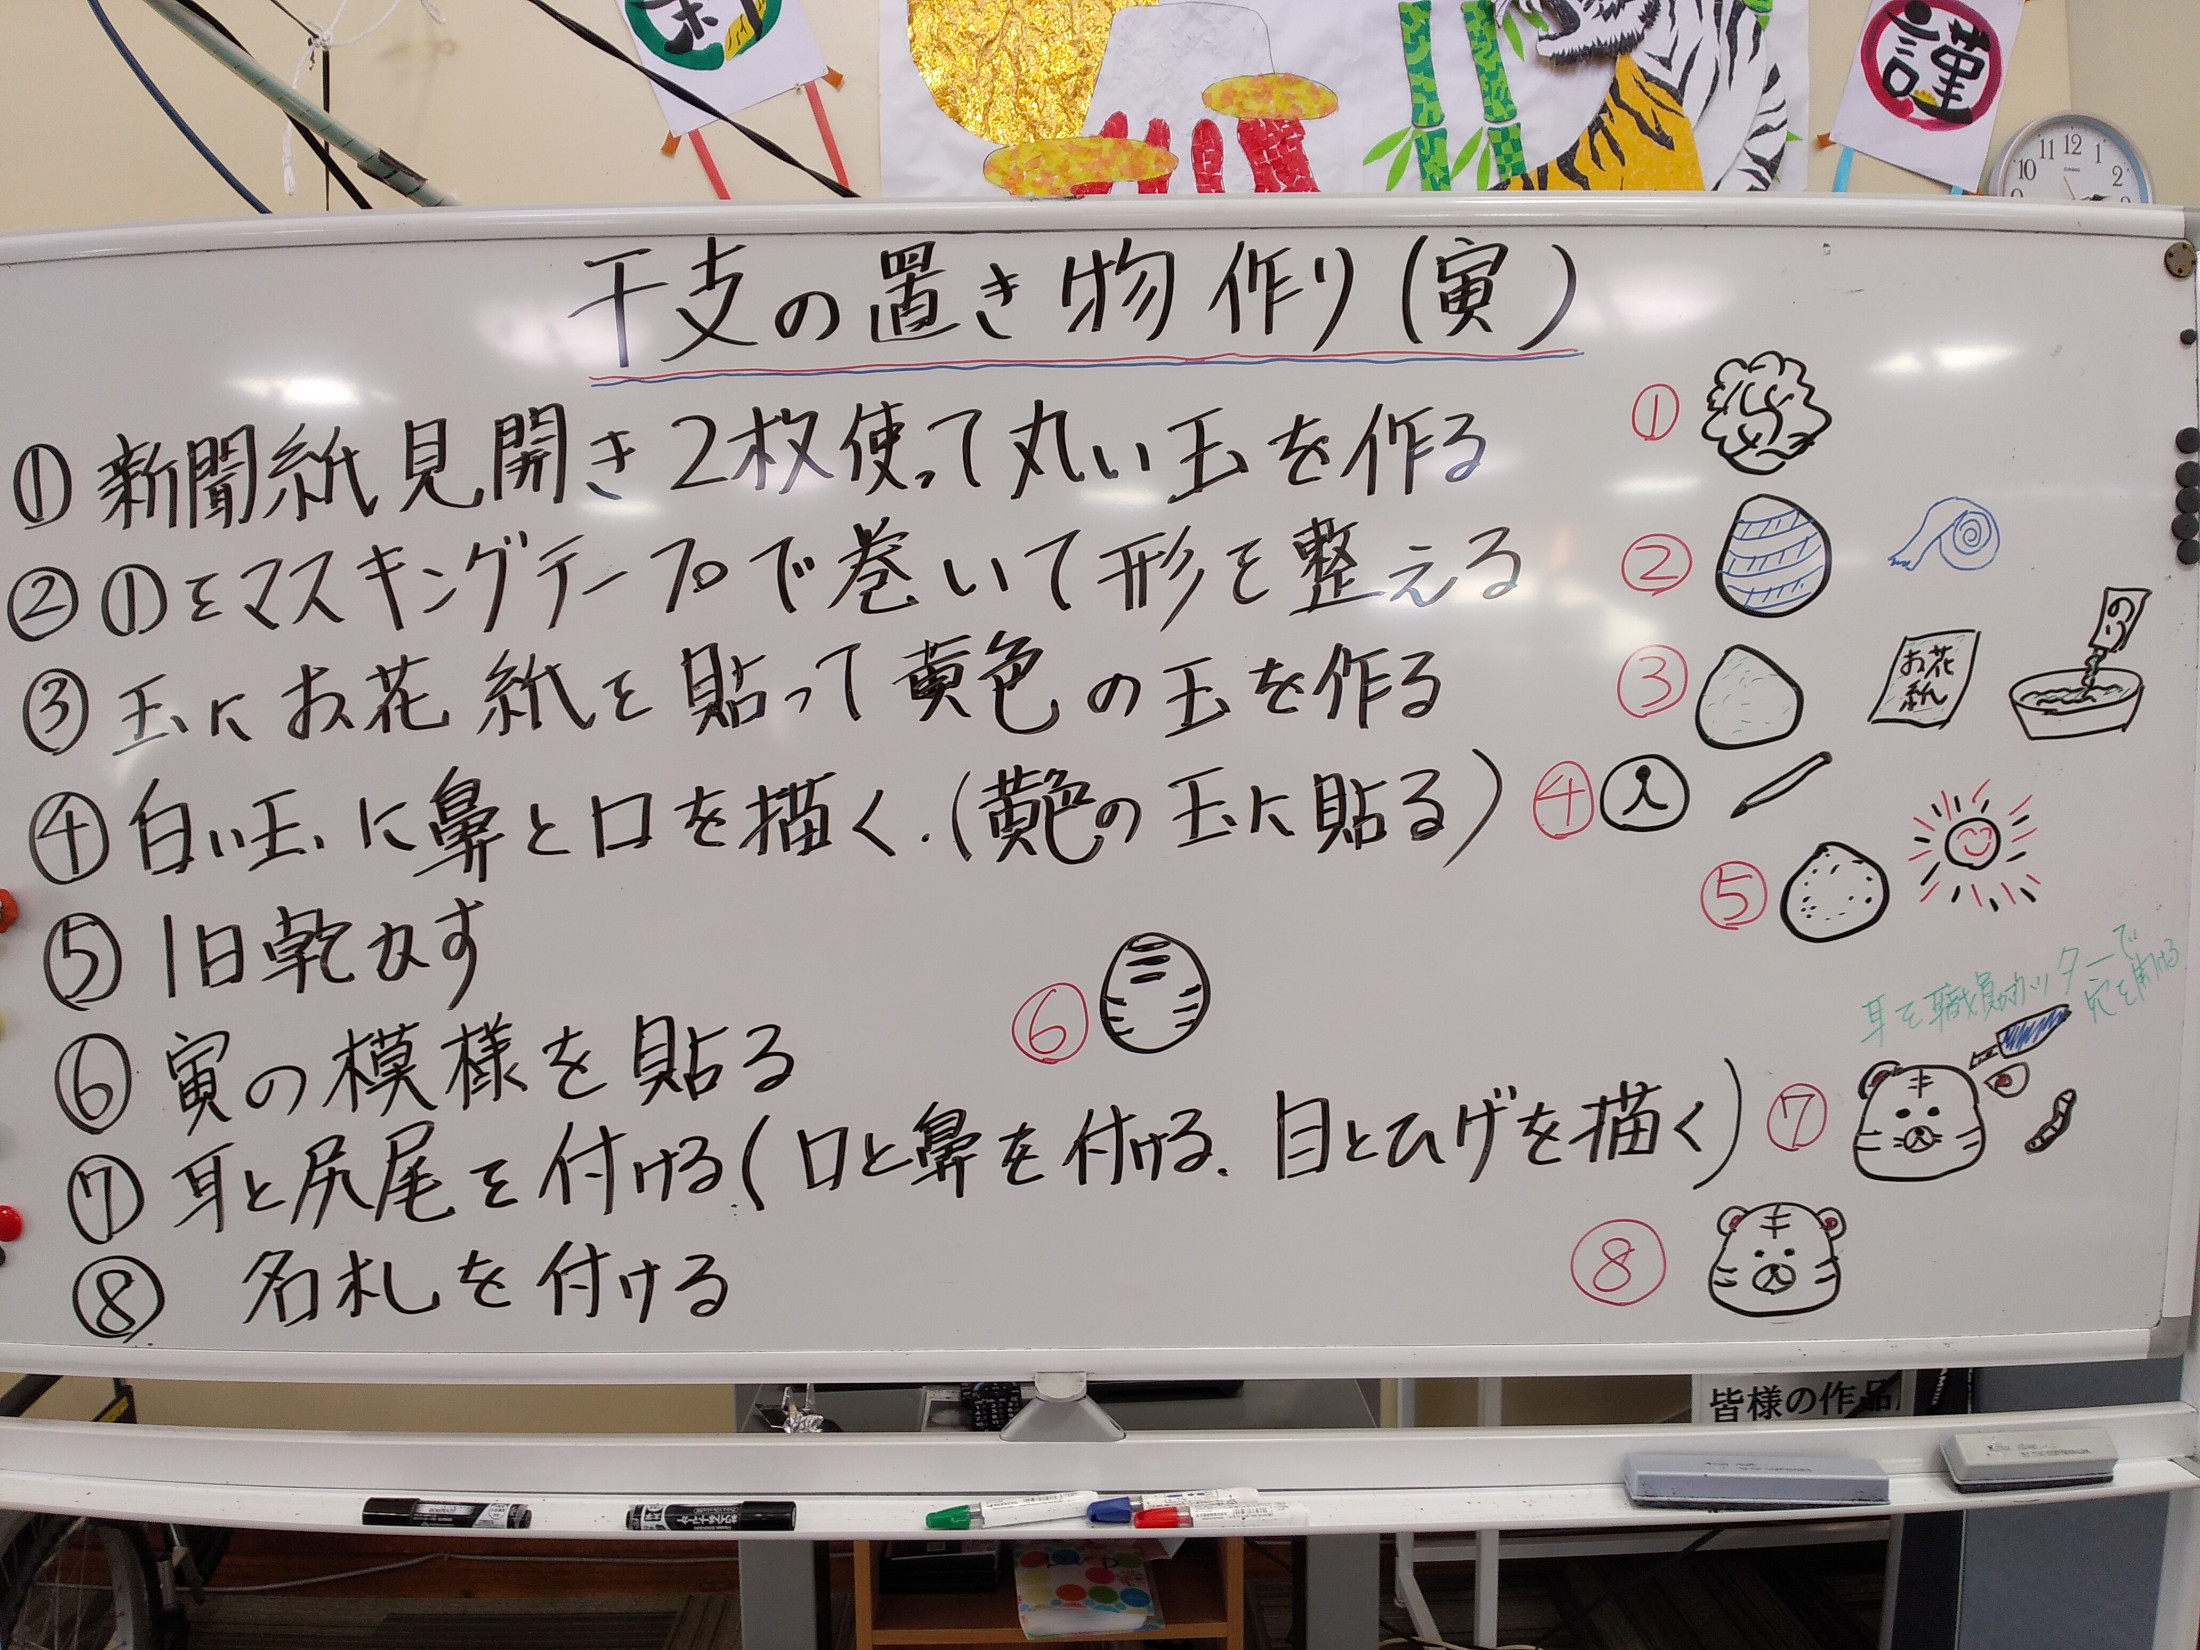 謹
11 12 1
10 2
干支の置き物作り(寅)
① 新聞紙見開き2枚使って丸い玉を作る
② ①をマスキングテープで巻いて形を整える
③ 玉にお花紙を貼って黄色の玉を作る
④ 白い玉に鼻と口を描く.(黄色の玉に貼る)
⑤ 1日乾かす
⑥ 寅の模様を貼る
⑦ 耳と尻尾を付ける(口と鼻を付ける. 目とひげを描く)
⑧ 名札を付ける
①
②
③
お花
紙
のり
④
⑤
⑥
耳を職員がカッターで
穴を開ける
⑦
⑧
皆様の作品